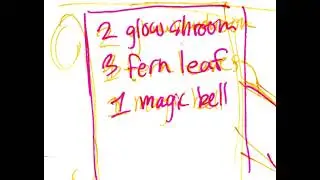 2 glowshroom
3 fern leaf
1 magic bell